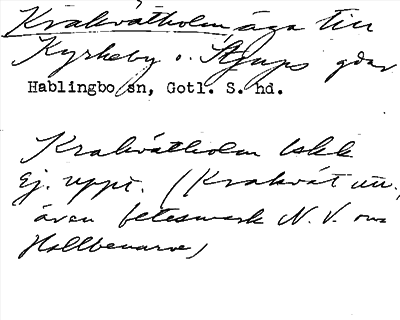 Krakvätholm äga till
Kyrkeby o. Stjups gdar
Hablingbo sn, Gotl. S. hd.
Krakvätholm lskk
Ej. uppt. (Krakvät utt.,
även betesmark N. V. om
Hallbenarve)